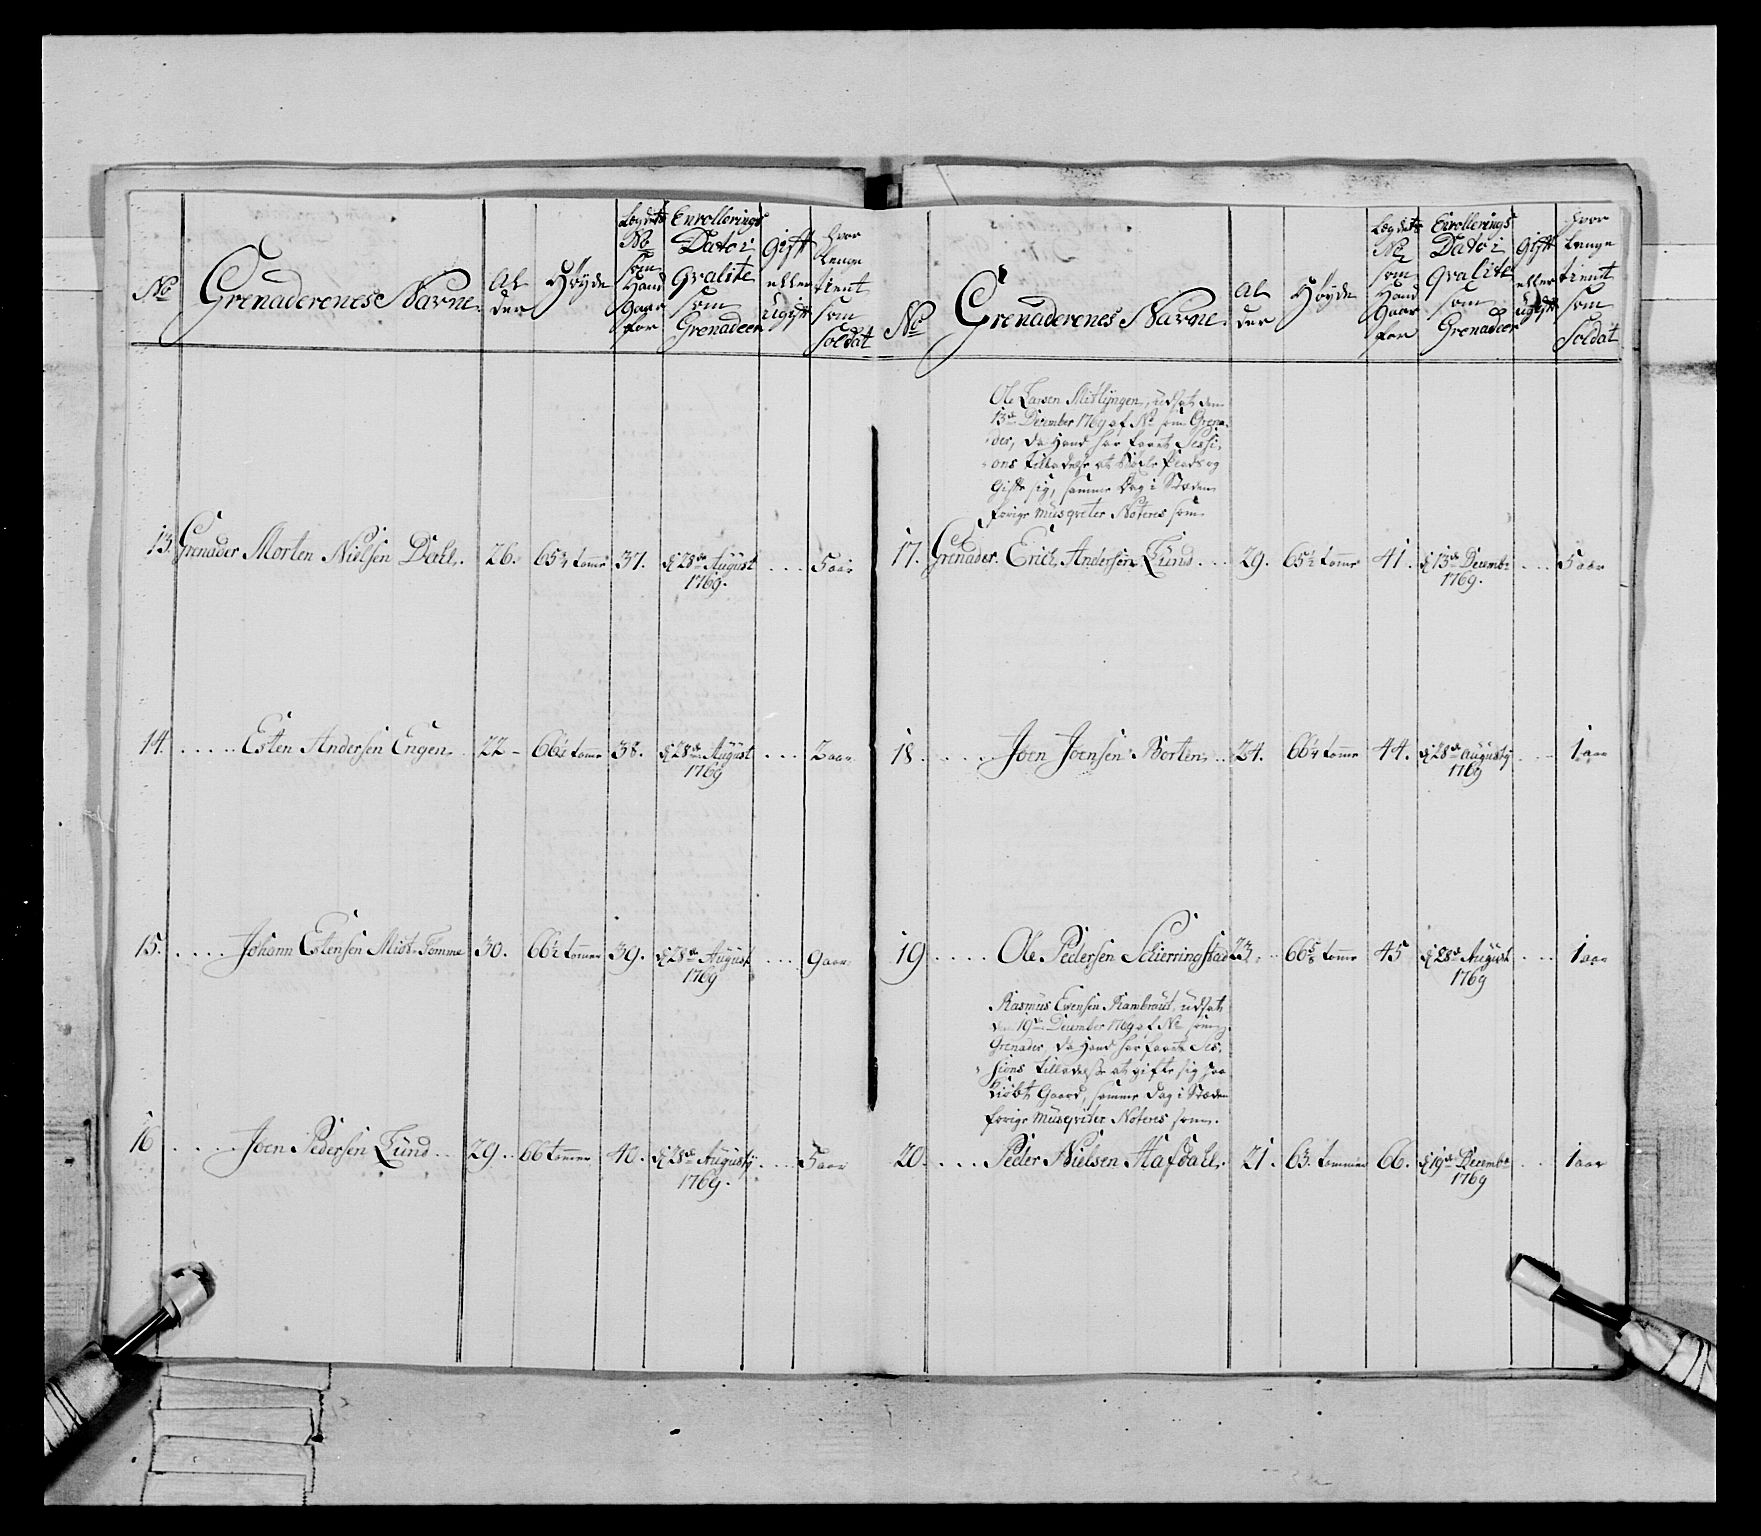 No
Grenaderenes Navne.
Al
der
Høyde
Legdets
No
som
Hand
staar
for
Enrollerings
Dato i
Qvalite
som
Grenadeer
Gift
eller
ugift
hvor
lenge
tient
som
Soldat
13. Grenader Morten Nielsen Dahl. 26. 65¾ tomme 37. d 28de August 1769. .... 5 aar
14. ..... Esten Andersen Engen. 22 66½ tomme 38. d 28de August 1769 .... 2 aar
15. .... Johann Estensen Midt-Tomme 30. 66½ tommer 39. d 28de August 1769 .... 9 aar
16 .... Joen Pedersen Lund .. 29 .. 66 tommer 40. d 28de Augustÿ 1769. .... 5 aar
No
Grenaderenes Navne.
Al
der
Høyde
Legdets
No
som
Hand
staar
for
Enrollerings
Dato i
Qvalite
som
Grenadeer
Gift
eller
ugift
hvor
lenge
tient
som
Soldat
Ole Larsen Midlÿngen, udsat den
13de December 1769 af No som Grena-
der, da Hand har faaet Sessi-
ons Tilladelse at Plads og
Gifte sig, samme Dag i Stæden
forige Musqveter Noteres som
17. Grenader. Erich Andersen Lund ... 29. 65½ tomme 41. d 13de Decembr 1769. .... 5 aar
18. .... Joen Joensen Borten .. 24. 66¼ tomme 44. d 28de Augustÿ 1769 .... 1 aar
19 .... Ole Pedersen Schierringstad 23 .. 66⅝ tomme 45 d 28de August 1769 .... 1 aar
Rasmus Evensen Rambraut, udsat
den 19de December 1769 af No som
Grenader, da Hand har faaet Ses-
sions Tilladelse at gifte sig paa
Kiøbt Gaard, samme Dag i Stæden
forige Musqveter Noteres som.
20. .... Peder Nielsen Hafdahl. 21. 63. tommer 66. d 19de Decembr 1769 .... 1 aar